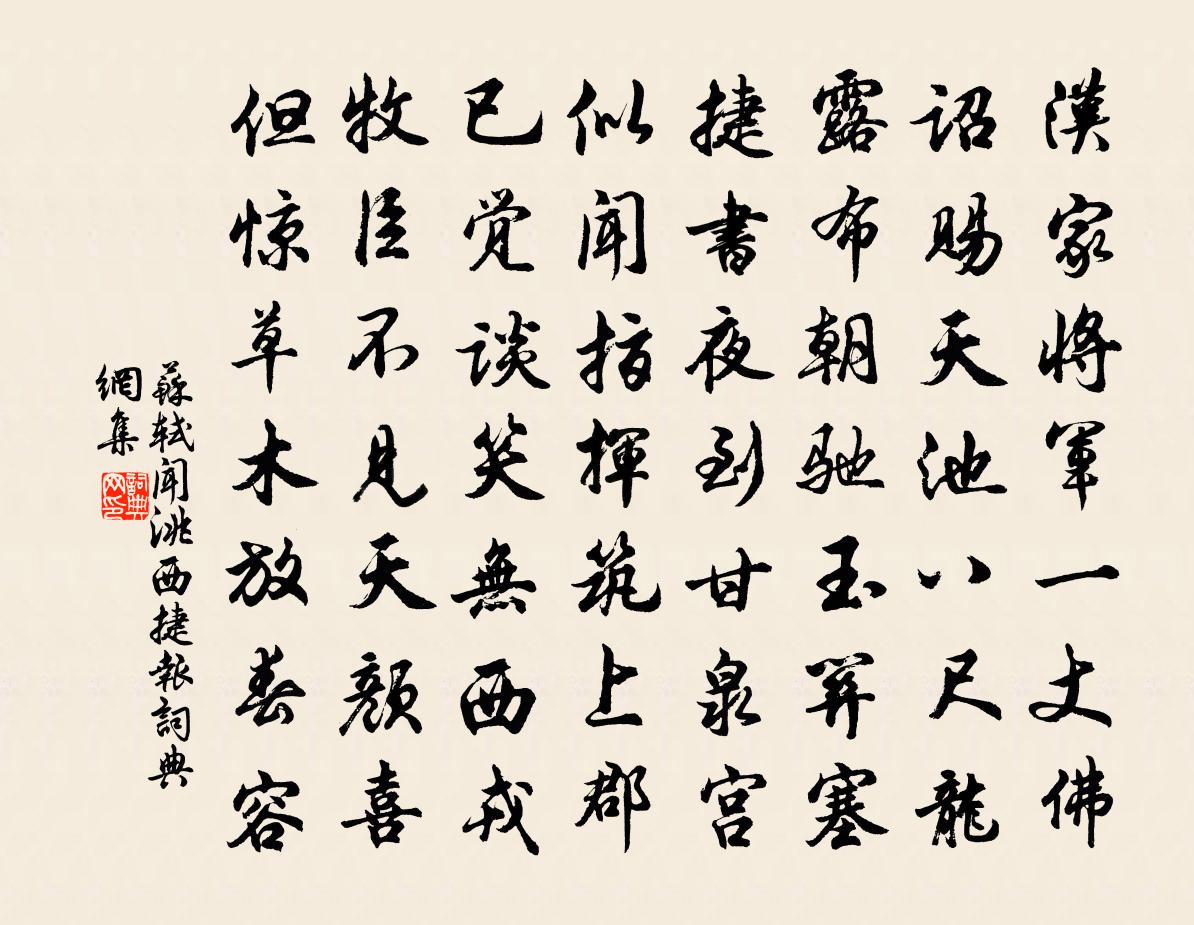 漢家將軍一丈佛
詔賜天池八尺龍
露布朝馳玉關塞
捷書夜到甘泉宮
似聞指揮筑上郡
已觉談笑無西戎
牧臣不見天顏喜
但惊草木放春容
蘇軾聞洮西捷報詞典
網集
詞典
网印